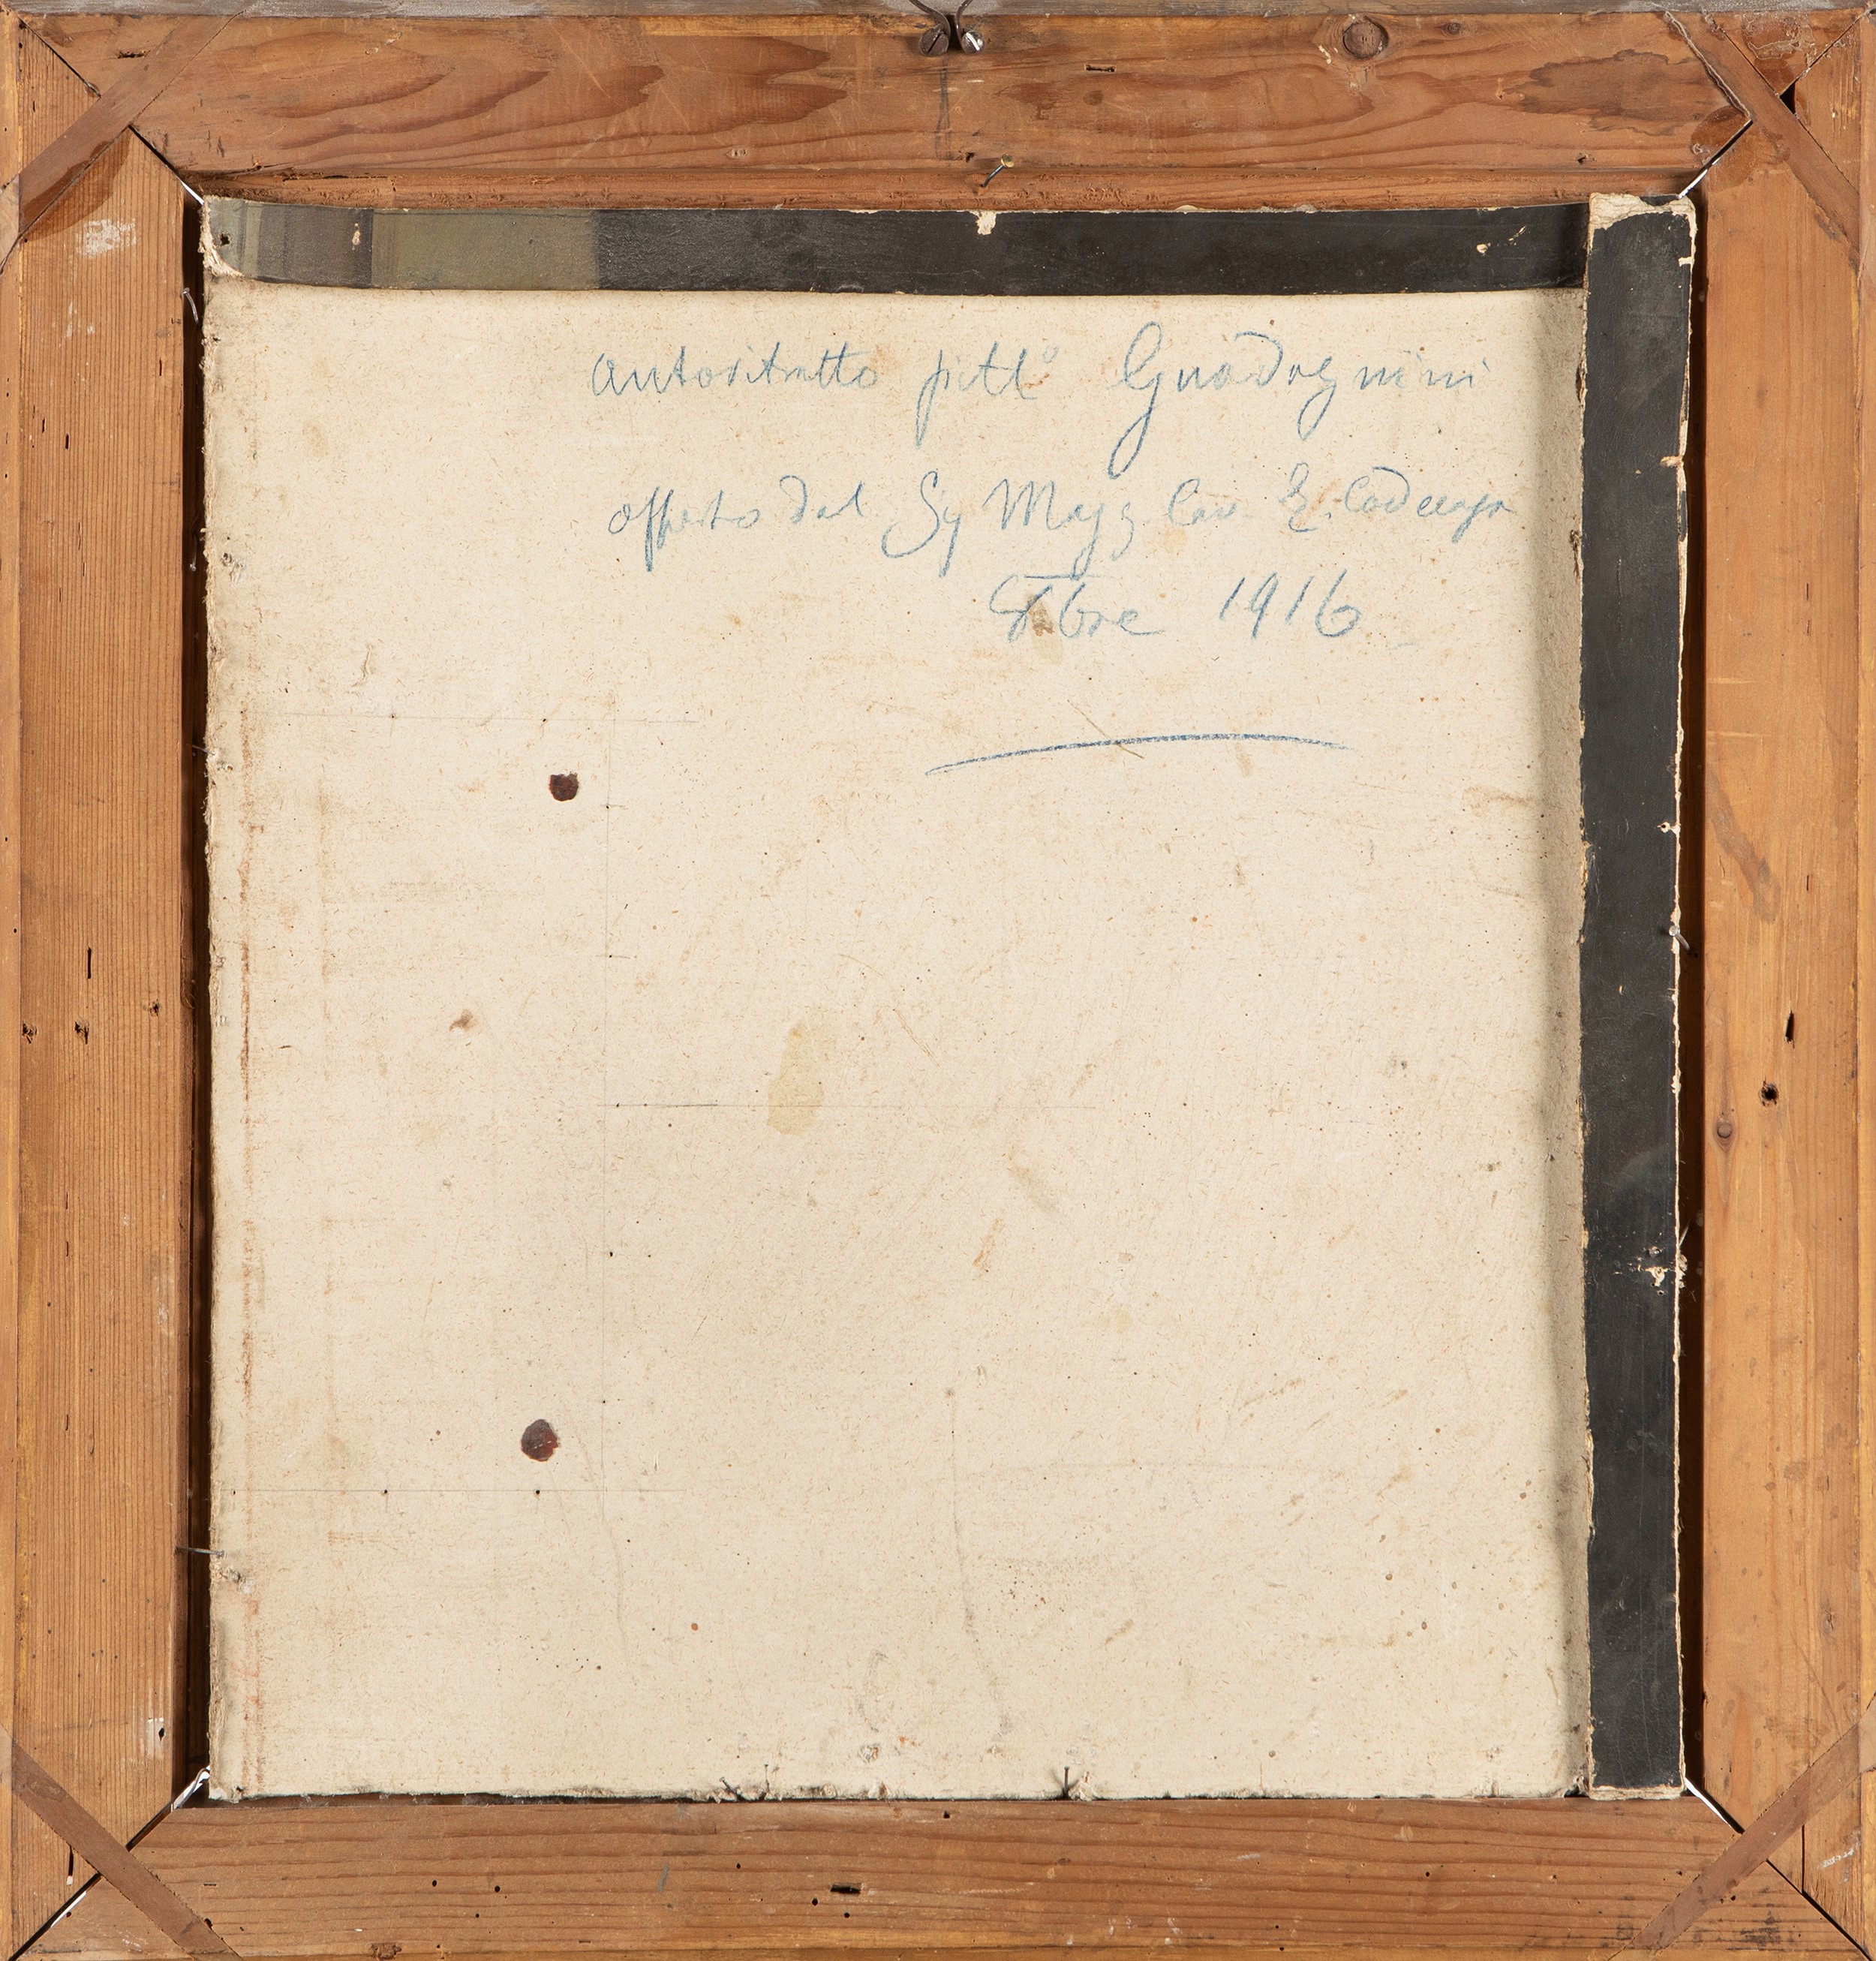 autoritratto pitt° Guadagnini
offerto dal Sg Magg. Cav. E. Codecasa
8bre 1916